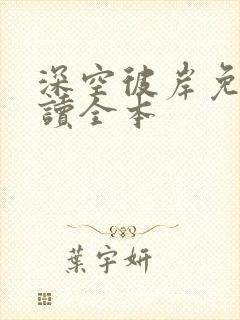 深空彼岸免
讀全本
葉宇妍